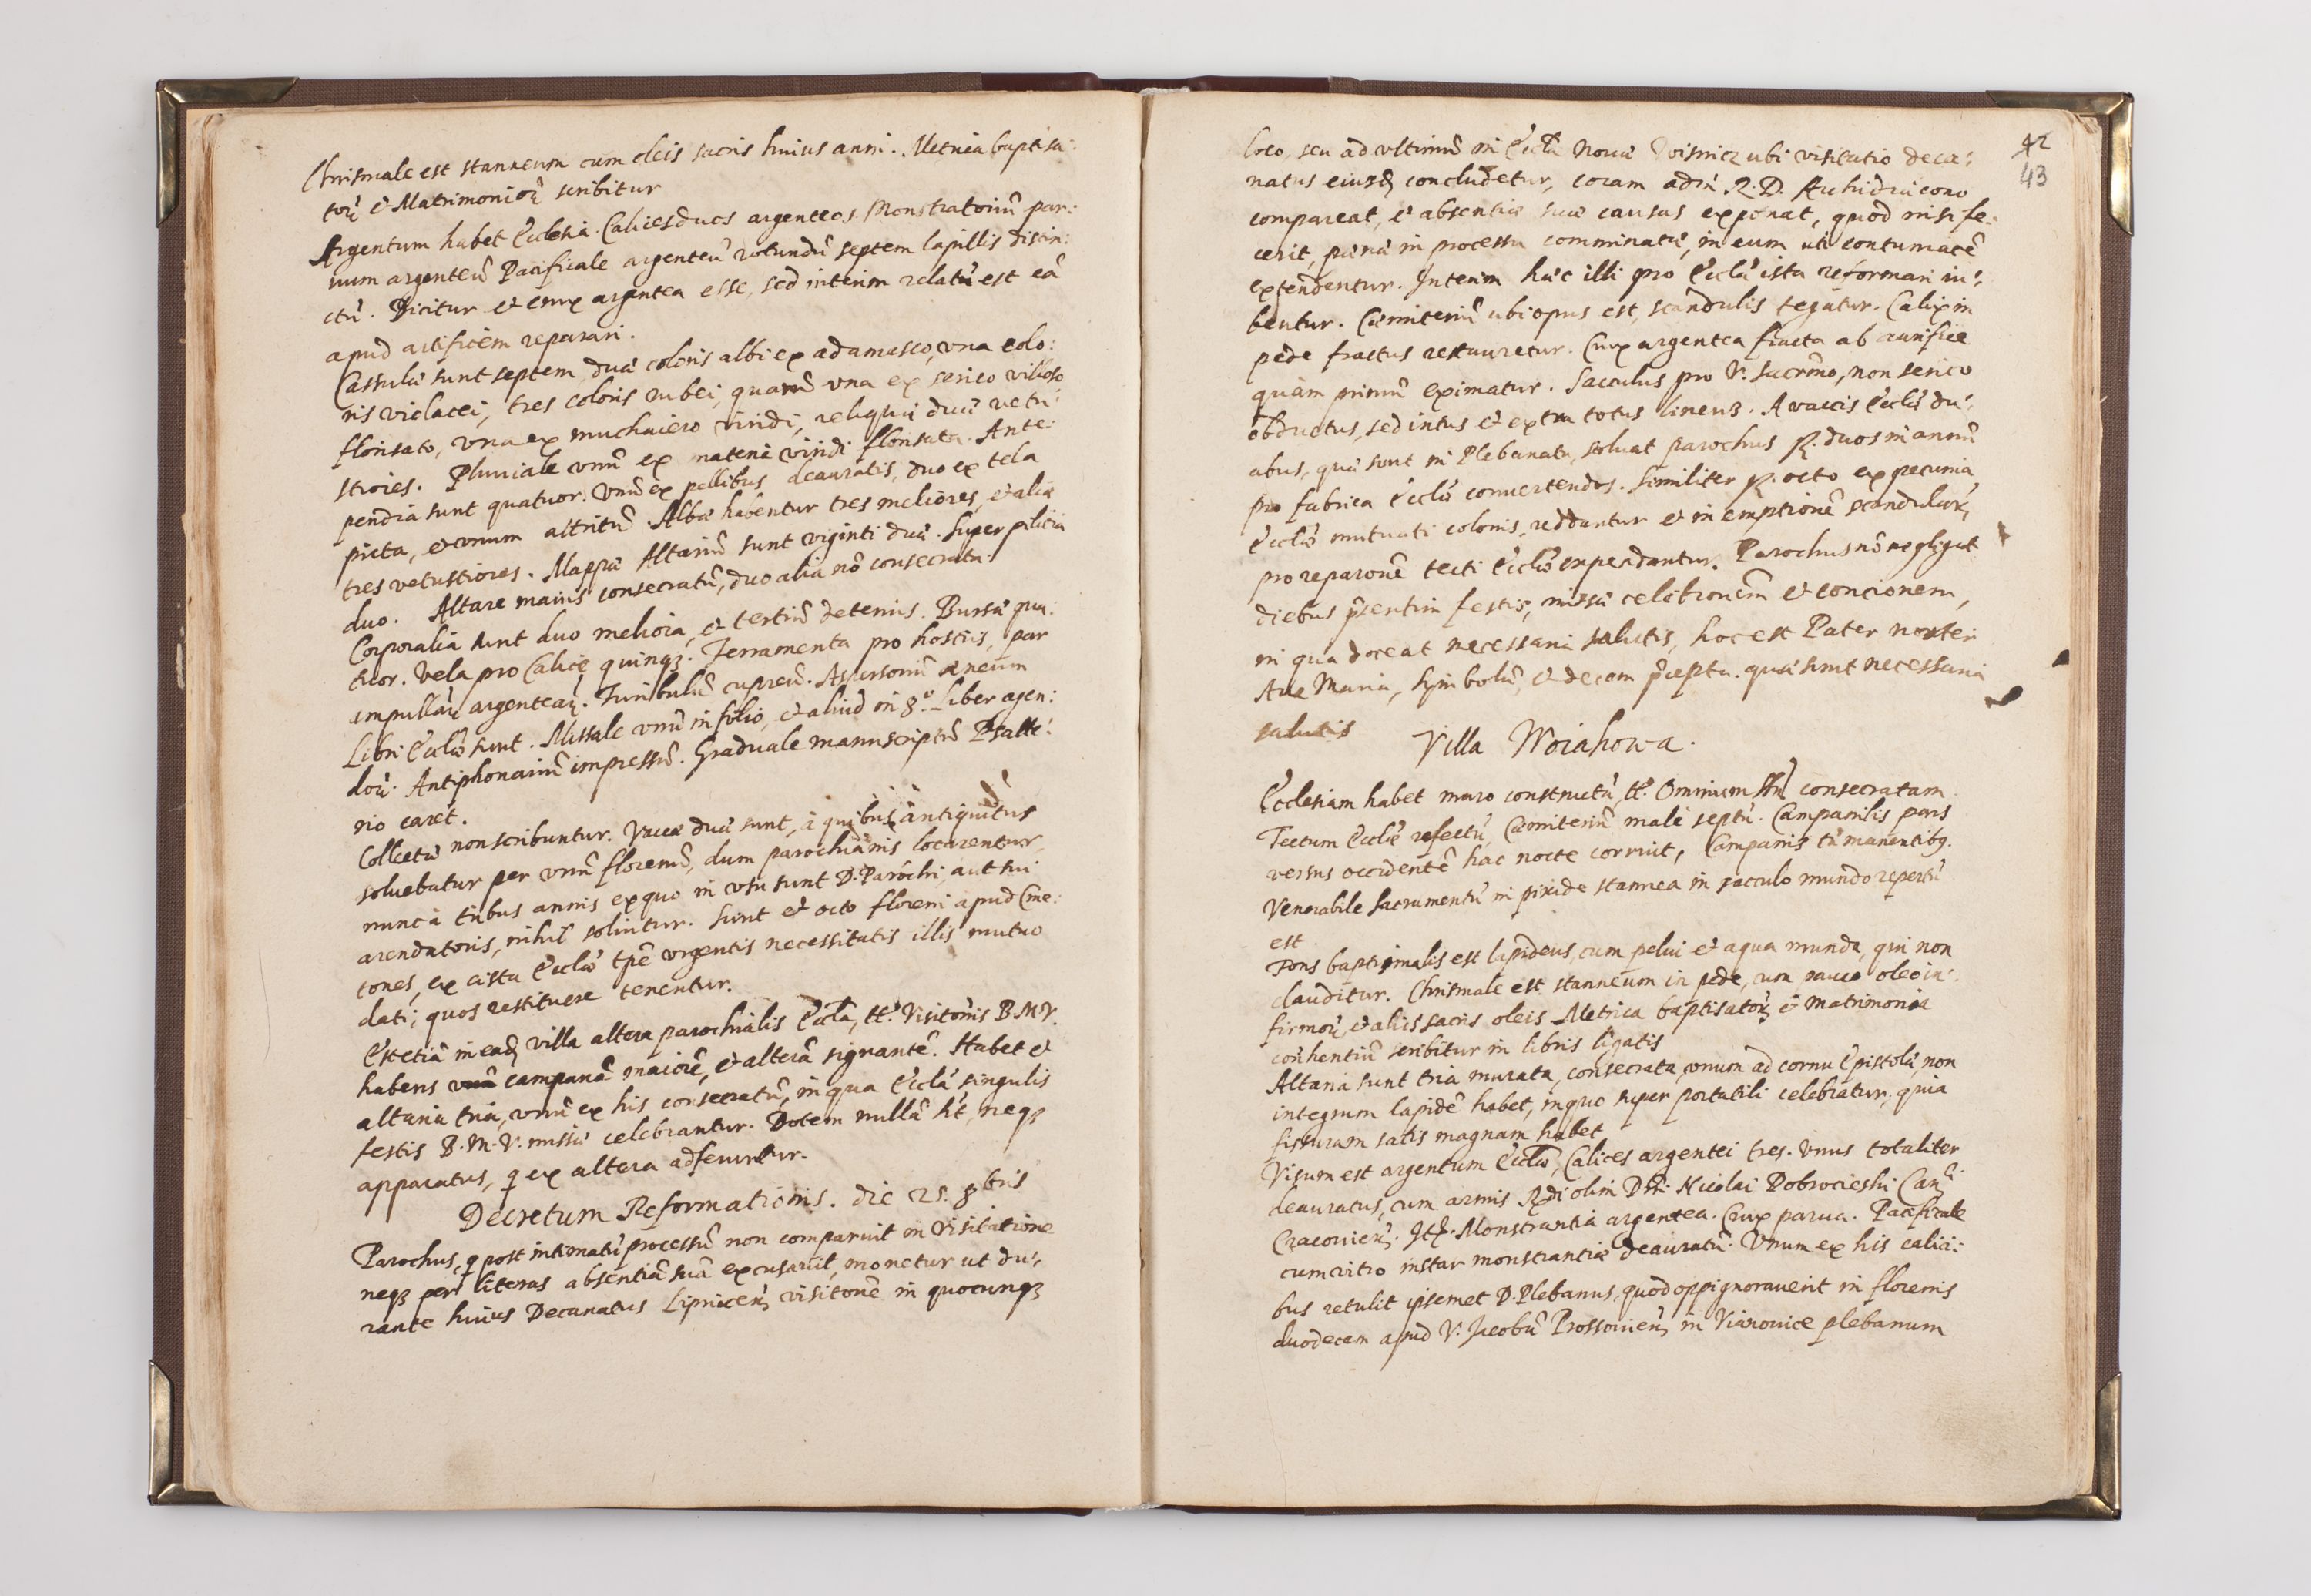 Chrismale est stanneum cum oleis sacris huius anni. Metrica baptisa:
torũ et Matrimoniorũ scribitur
Argentum habet Ecclesia. Calices duos argenteos. Monstratoriũ par:
uum argenteũ Pacificale argenteũ rotundũ septem lapillis distin:
ctũ. Dicitur et crux argentea esse, sed interim relatũ est eã
apud artificem reparari.
Cassulæ sunt septem, duæ coloris albi ex adamasco, una colo:
ris violacei, tres coloris rubei, quarũ una ex serico villoso
florisato, una ex muchaiero viridi, reliquæ duæ vetu:
stiores. Pluuiale vnũ ex materia viridi florisata. Ante:
pendia sunt quatuor. Vnũ ex pellibus deauratis, duo ex tela
picta, et vnum attritũ. Albæ habentur tres meliores, et aliæ
tres vetustiores. Mappæ Altariũ sunt viginti duæ. Superpilicia
duo. Altare maius consecratũ, duo alia nõ consecrata.
Corporalia sunt duo meliora, et tertiũ deterius. Bursæ qua:
tuor. Vela pro Calice quinqꝫ. Ferramenta pro hostiis, par
ampullarũ argentearũ. Turibulũ cupreũ. Aspersoriũ æneum
Libri Ecclæ sunt. Missale vnũ in folio, et aliud in 8º. Liber agen:
dorũ. Antiphonariũ impressũ. Graduale manuscriptũ Psalte:
rio caret.
Collectæ non scribuntur. Vaccæ duæ sunt, à quibus antiquitus
soluebatur per vnũ florenũ, dum parochianis locarentur,
nunc à tribus annis ex quo in vsu sunt D. Parochi, aut sui
arendatoris, nihil soluitur. Sunt et octo floreni apud Cme:
tones, ex cista Ecclæ tpẽ vrgentis necessitatis illis mutuo
dati, quos restituere tenentur.
Est etiã in eadẽ villa altera parochialis Eccla, tt. Visitonis B.M.V.
habens vnã campanã maiorẽ, et alterã signantẽ. Habet et
altaria tria, vnũ ex his consecratũ, in qua Ecclã singulis
festis B.M.V. missæ celebrantur. Dotem nullã ht, neqꝫ
apparatus, q̃ ex altera adferuntur.
Decretum Reformationis. die 25. 8bris
Parochus, q̃ post intimatũ processũ non comparuit in visitatione
neqꝫ per literas absentiã suã excusauit, monetur ut du:
rante huius Decanatus Lipnicen̄ visitonẽ in quocunqꝫ
42
43
loco, seu ad vltimũ in Eccla Nouæ Wisnicz ubi visitatio deca:
natus eiusdẽ concludetur, coram adm̃ R.D. Archidiacono
compareat, et absentiæ suæ causas exponat, quod nisi fe:
cerit, pænæ in processu comminatæ, in eum uti contumacẽ
extendentur. Interim hæc illi pro Ecclã ista reformari iu:
bentur. Cæmiteriũ ubi opus est, scandulis tegatur. Calix in
pede fractus restauretur. Crux argentea fracta ab aurifice
quàm primũ eximatur. Sacculus pro V. Sacrmo, non serico
obductus, sed intus et extra totus lineus. A vaccis Ecclæ du:
abus, quæ sunt in Plebanatu, soluat parochus fl. duos in annũ
pro fabrica Ecclæ conuertendos. Similiter fl. octo ex pecunia
Ecclæ mutuati colonis, reddantur et in emptionẽ scandularũ,
pro reparonẽ tecti Ecclæ expendantur. Parochus nõ negligat
diebus p̃sertim festis, missæ celebronem et concionem,
in qua doceat necessaria salutis, hoc est Pater noster
Aue Maria, Symbolũ, et decem p̃cepta. quæ sunt necessaria
salutis
Villa Woiakowa.
Ecclesiam habet muro constructã, tt. Omnium Sstm̃ consecratam.
Tectum Ecclæ refectũ, Cæmiteriũ malè septũ. Campanilis pars
versus occidentẽ hac nocte corruit, Campanis tñ manentibꝫ.
Venerabile Sacramentũ in pixide stannea in sacculo mundo repertũ
est
Fons baptismalis est lapideus, cum pelui et aqua munda, qui non
clauditur. Chrismale est stanneum in pede, cum pauco oleo in:
firmorũ, et aliis sacris oleis Metrica baptisatorũ et matrimonia
con̄hentiũ scribitur in libris ligatis
Altaria sunt tria murata, consecrata, vnum ad cornu Epistolæ, non
integrum lapidẽ habet, in quo super portatili celebratur, quia
fissuram satis magnam habet
Visum est argentum Ecclæ, Calices argentei tres. Vnus totaliter
deauratus, cum armis Rdi olim Dni Nicolai Dobrocieski Canci
Cracouien̄. It. Monstrantia argentea. Crux parua. Pacificale
cum vitro instar monstrantiæ deauratũ. Vnum ex his calici:
bus retulit ipsemet D. Plebanus, quod oppignorauerit in florenis
duodecem apud V. Jacobũ Prossouien̄, in Vianouice plebanum